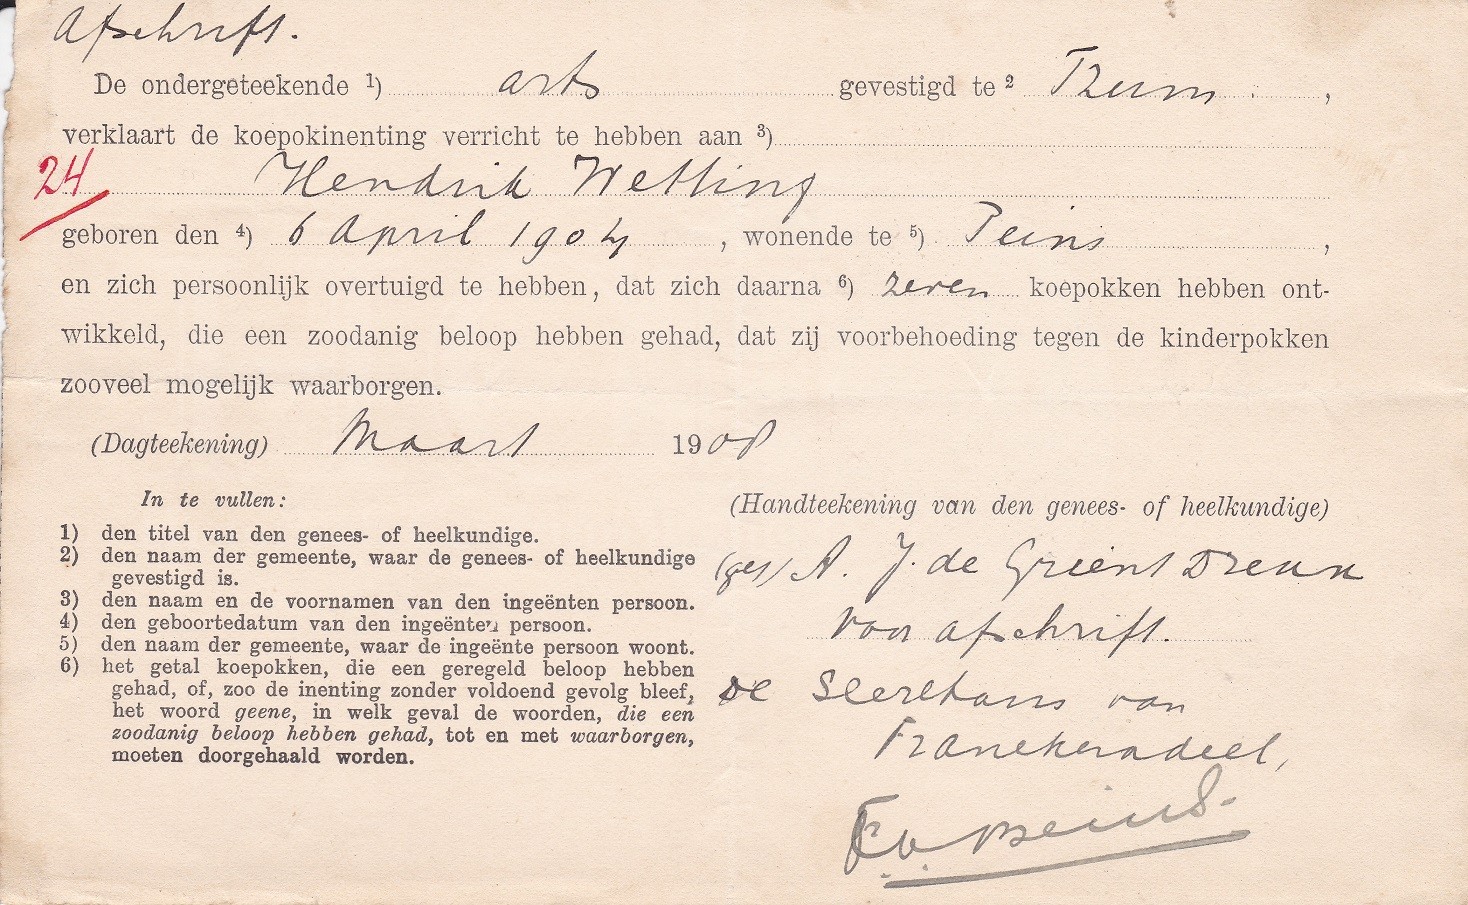 Afschrift.
De ondergeteekende 1) arts gevestigd te 2 Tzum. ,
verklaart de koepokinenting verricht te hebben aan 3)
24 Hendrik Wetting
geboren den 4) 6 April 1904 , wonende te 5) Peins ,
en zich persoonlijk overtuigd te hebben, dat zich daarna 6) zeven koepokken hebben ont-
wikkeld, die een zoodanig beloop hebben gehad, dat zij voorbehoeding tegen de kinderpokken
zooveel mogelijk waarborgen.
(Dagteekening) Maart 1908
In te vullen:
1) den titel van den genees- of heelkundige.
2) den naam der gemeente, waar de genees- of heelkundige
gevestigd is.
3) den naam en de voornamen van den ingeënten persoon.
4) den geboortedatum van den ingeënten persoon.
5) den naam der gemeente, waar de ingeënte persoon woont.
6) het getal koepokken, die een geregeld beloop hebben
gehad, of, zoo de inenting zonder voldoend gevolg bleef,
het woord geene, in welk geval de woorden, die een
zoodanig beloop hebben gehad, tot en met waarborgen,
moeten doorgehaald worden.
(Handteekening van den genees- of heelkundige)
(get) A. J. de Grient Dreux
Voor afschrift.
De Secretaris van
Franekeradeel,